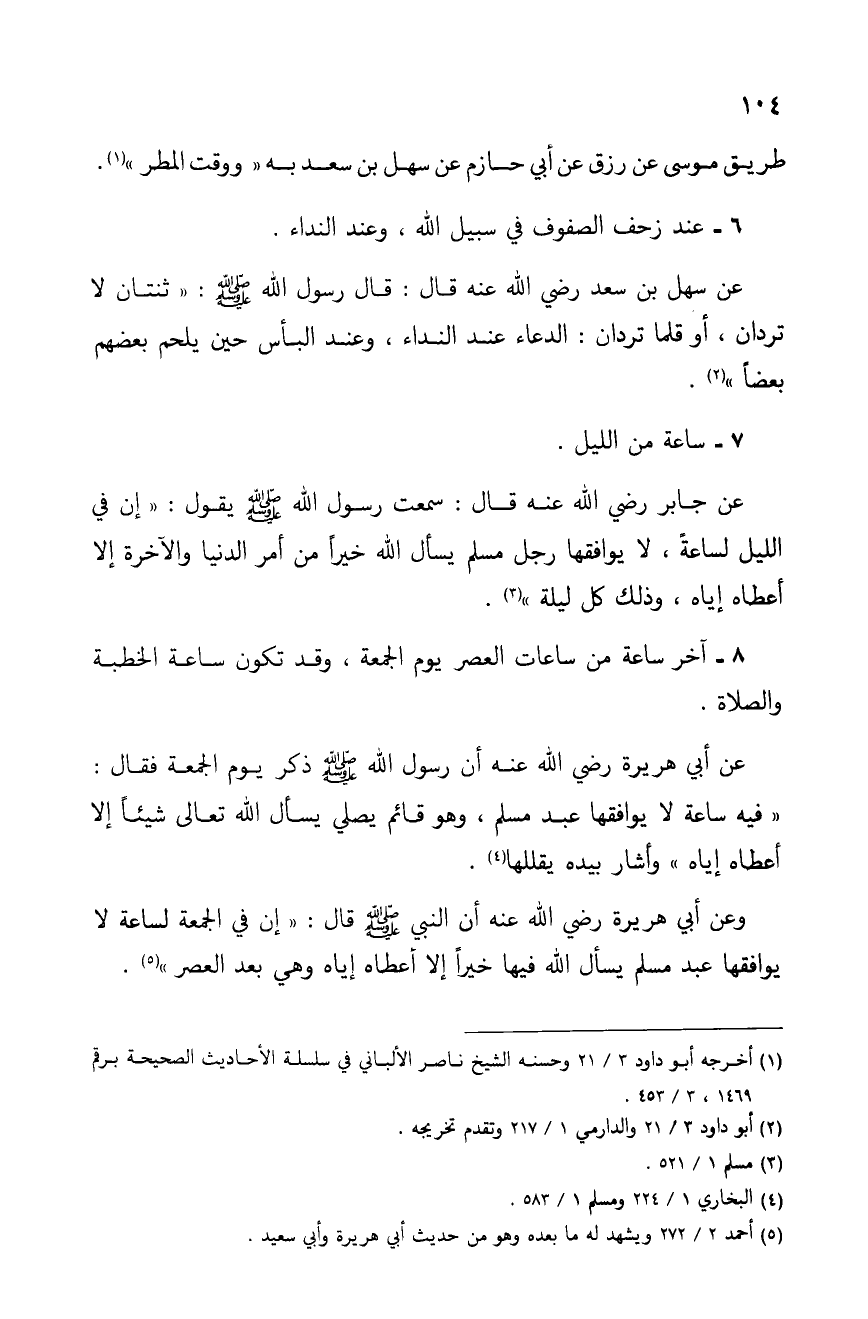 ١٠٤
طريق موسى عن رزق عن أبي حازم عن سهل بن سعد به « ووقت المطر »(١) .
٦ ـ عند زحف الصفوف في سبيل الله ، وعند النداء .
عن سهل بن سعد رضي الله عنه قال : قال رسول الله ﷺ : « ثنتان لا
تردان ، أو قلما تردان : الدعاء عند النداء ، وعند البأس حين يلحم بعضهم
بعضاً »(٢) .
٧ ـ ساعة من الليل .
عن جابر رضي الله عنه قال : سمعت رسول الله ﷺ يقول : « إن في
الليل لساعةً ، لا يوافقها رجل مسلم يسأل الله خيراً من أمر الدنيا والآخرة إلا
أعطاه إياه ، وذلك كل ليلة »(٣) .
٨ ـ آخر ساعة من ساعات العصر يوم الجمعة ، وقد تكون ساعة الخطبة
والصلاة .
عن أبي هريرة رضي الله عنه أن رسول الله ﷺ ذكر يوم الجمعة فقال :
« فيه ساعة لا يوافقها عبد مسلم ، وهو قائم يصلي يسأل الله تعالى شيئاً إلا
أعطاه إياه » وأشار بيده يقللها(٤) .
وعن أبي هريرة رضي الله عنه أن النبي ﷺ قال : « إن في الجمعة لساعة لا
يوافقها عبد مسلم يسأل الله فيها خيراً إلا أعطاه إياه وهي بعد العصر »(٥) .
(١) أخرجه أبو داود ٣ / ٢١ وحسنه الشيخ ناصر الألباني في سلسلة الأحاديث الصحيحة برقم
١٤٦٩ ، ٣ / ٤٥٣ .
(٢) أبو داود ٣ / ٢١ والدارمي ١ / ٢١٧ وتقدم تخريجه .
(٣) مسلم ١ / ٥٢١ .
(٤) البخاري ١ / ٢٢٤ ومسلم ١ / ٥٨٣ .
(٥) أحمد ٢ / ٢٧٢ ويشهد له ما بعده وهو من حديث أبي هريرة وأبي سعيد .